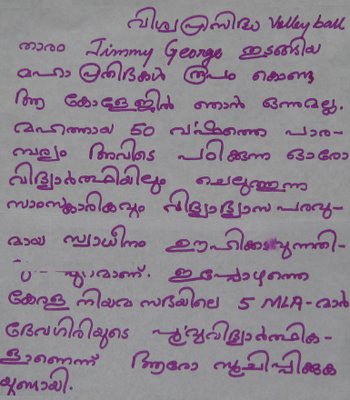 വിശ്വപ്രസിദ്ധ Volleyball
താരം Jimmy George ഇടങ്ങിയ
മഹാ പ്രതിഭകൾ രൂപം കൊണ്ട
ആ കോളേജിൽ ഞാൻ ഒന്നുമല്ല.
മഹത്തായ 50 വർഷത്തെ പാര-
മ്പര്യം അവിടെ പഠിക്കുന്ന ഓരോ
വിദ്യാർത്ഥിയിലും ചെലുത്തുന്ന
സാംസ്കാരികവും വിദ്യാഭ്യാസപരവു-
മായ സ്വാധീനം ഊഹിക്കാവുന്നതി-
മാണ്. ഇപ്പോഴത്തെ
കേരള നിയമ സഭയിലെ 5 MLA-മാർ
ദേവഗിരിയുടെ പൂർവ്വവിദ്യാർത്ഥിക-
ളാണെന്ന് ആരോ സൂചിപ്പിക്കുക
യുണ്ടായി.